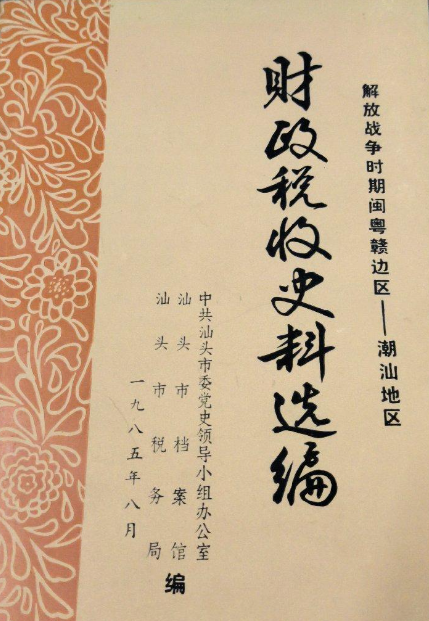 解放战争时期闽粤赣边区——潮汕地区
财政税收史料选编
中共汕头市委党史领导小组办公室
汕头市档案馆
汕头市税务局
编
一九八五年八月